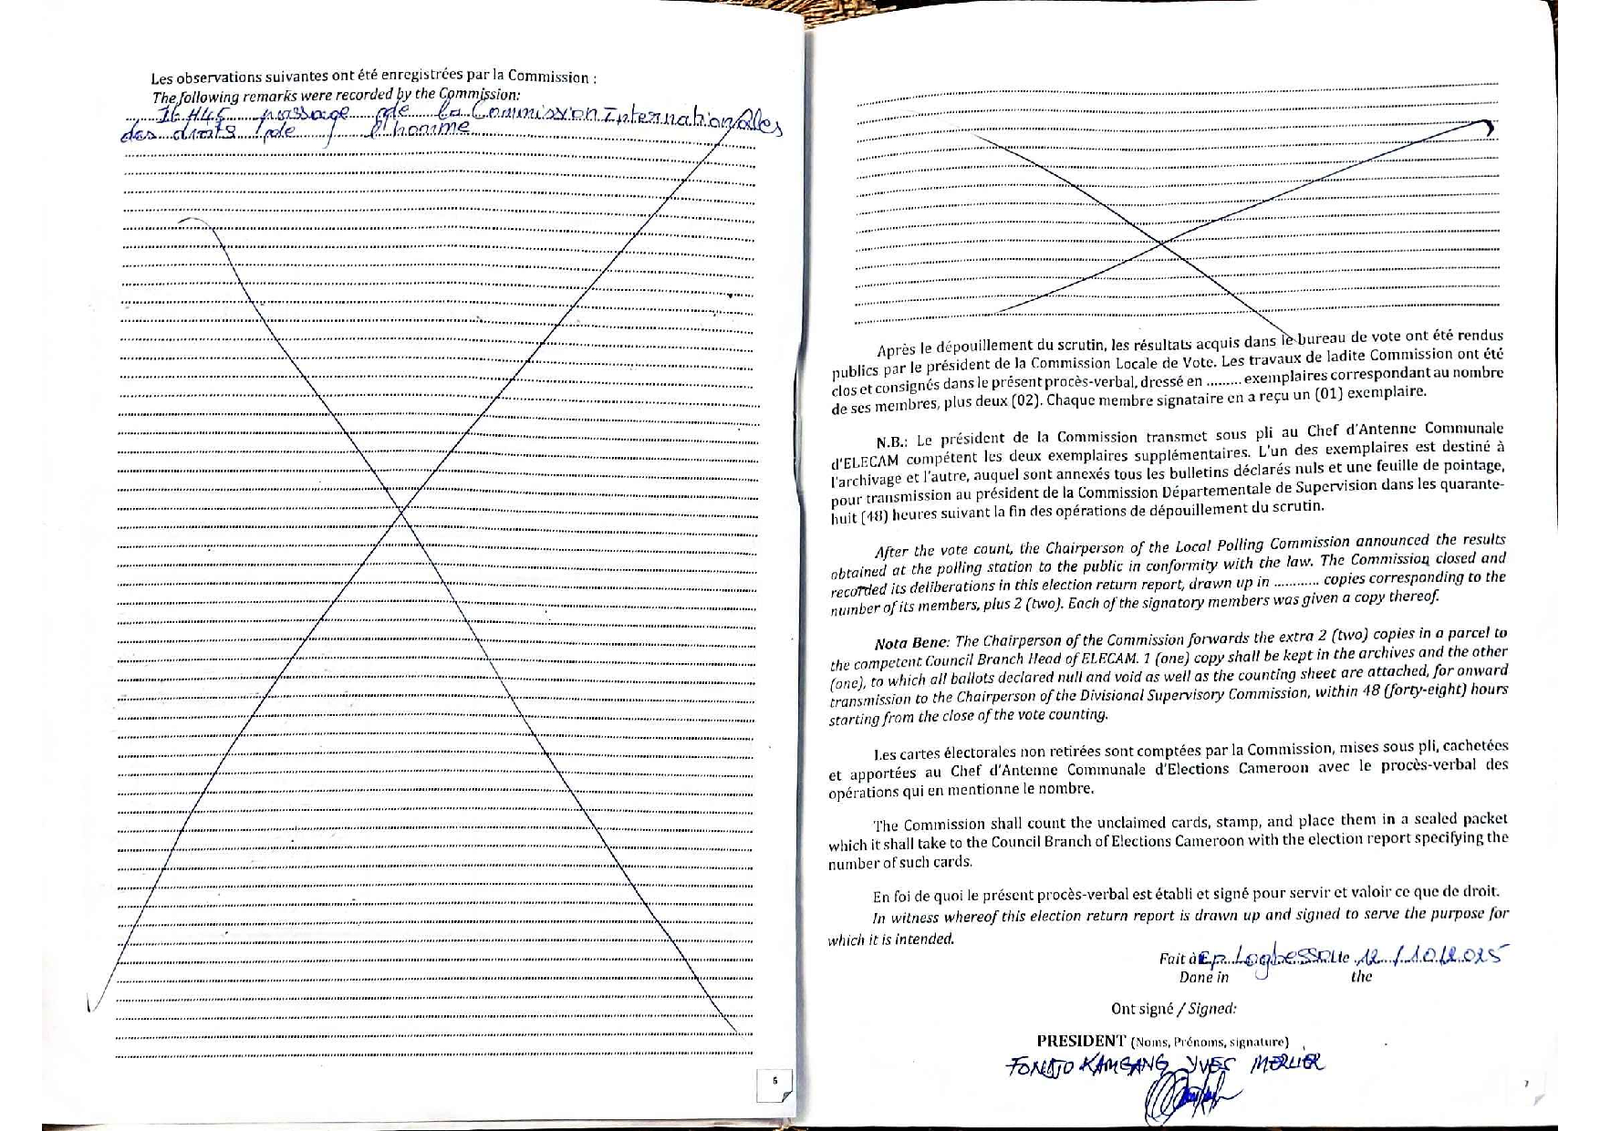 Les observations suivantes ont été enregistrées par la Commission :
The following remarks were recorded by the Commission:
16H45 passage de la Commission Internationales
des droits de l'homme
6
Après le dépouillement du scrutin, les résultats acquis dans le bureau de vote ont été rendus
publics par le président de la Commission Locale de Vote. Les travaux de ladite Commission ont été
clos et consignés dans le présent procès-verbal, dressé en ......... exemplaires correspondant au nombre
de ses membres, plus deux (02). Chaque membre signataire en a reçu un (01) exemplaire.
N.B.: Le président de la Commission transmet sous pli au Chef d'Antenne Communale
d'ELECAM compétent les deux exemplaires supplémentaires. L'un des exemplaires est destiné à
l'archivage et l'autre, auquel sont annexés tous les bulletins déclarés nuls et une feuille de pointage,
pour transmission au président de la Commission Départementale de Supervision dans les quarante-
huit (48) heures suivant la fin des opérations de dépouillement du scrutin.
After the vote count, the Chairperson of the Local Polling Commission announced the results
obtained at the polling station to the public in conformity with the law. The Commission closed and
recorded its deliberations in this election return report, drawn up in ........... copies corresponding to the
number of its members, plus 2 (two). Each of the signatory members was given a copy thereof.
Nota Bene: The Chairperson of the Commission forwards the extra 2 (two) copies in a parcel to
the competent Council Branch Head of ELECAM. 1 (one) copy shall be kept in the archives and the other
(one), to which all ballots declared null and void as well as the counting sheet are attached, for onward
transmission to the Chairperson of the Divisional Supervisory Commission, within 48 (forty-eight) hours
starting from the close of the vote counting.
Les cartes électorales non retirées sont comptées par la Commission, mises sous pli, cachetées
et apportées au Chef d'Antenne Communale d'Elections Cameroon avec le procès-verbal des
opérations qui en mentionne le nombre.
The Commission shall count the unclaimed cards, stamp, and place them in a sealed packet
which it shall take to the Council Branch of Elections Cameroon with the election report specifying the
number of such cards.
En foi de quoi le présent procès-verbal est établi et signé pour servir et valoir ce que de droit.
In witness whereof this election return report is drawn up and signed to serve the purpose for
which it is intended.
Fait à Ep Logbesso le 12/10/2025
Done in the
Ont signé / Signed:
PRESIDENT (Noms, Prénoms, signature)
KAMGANG YVES MERLIER